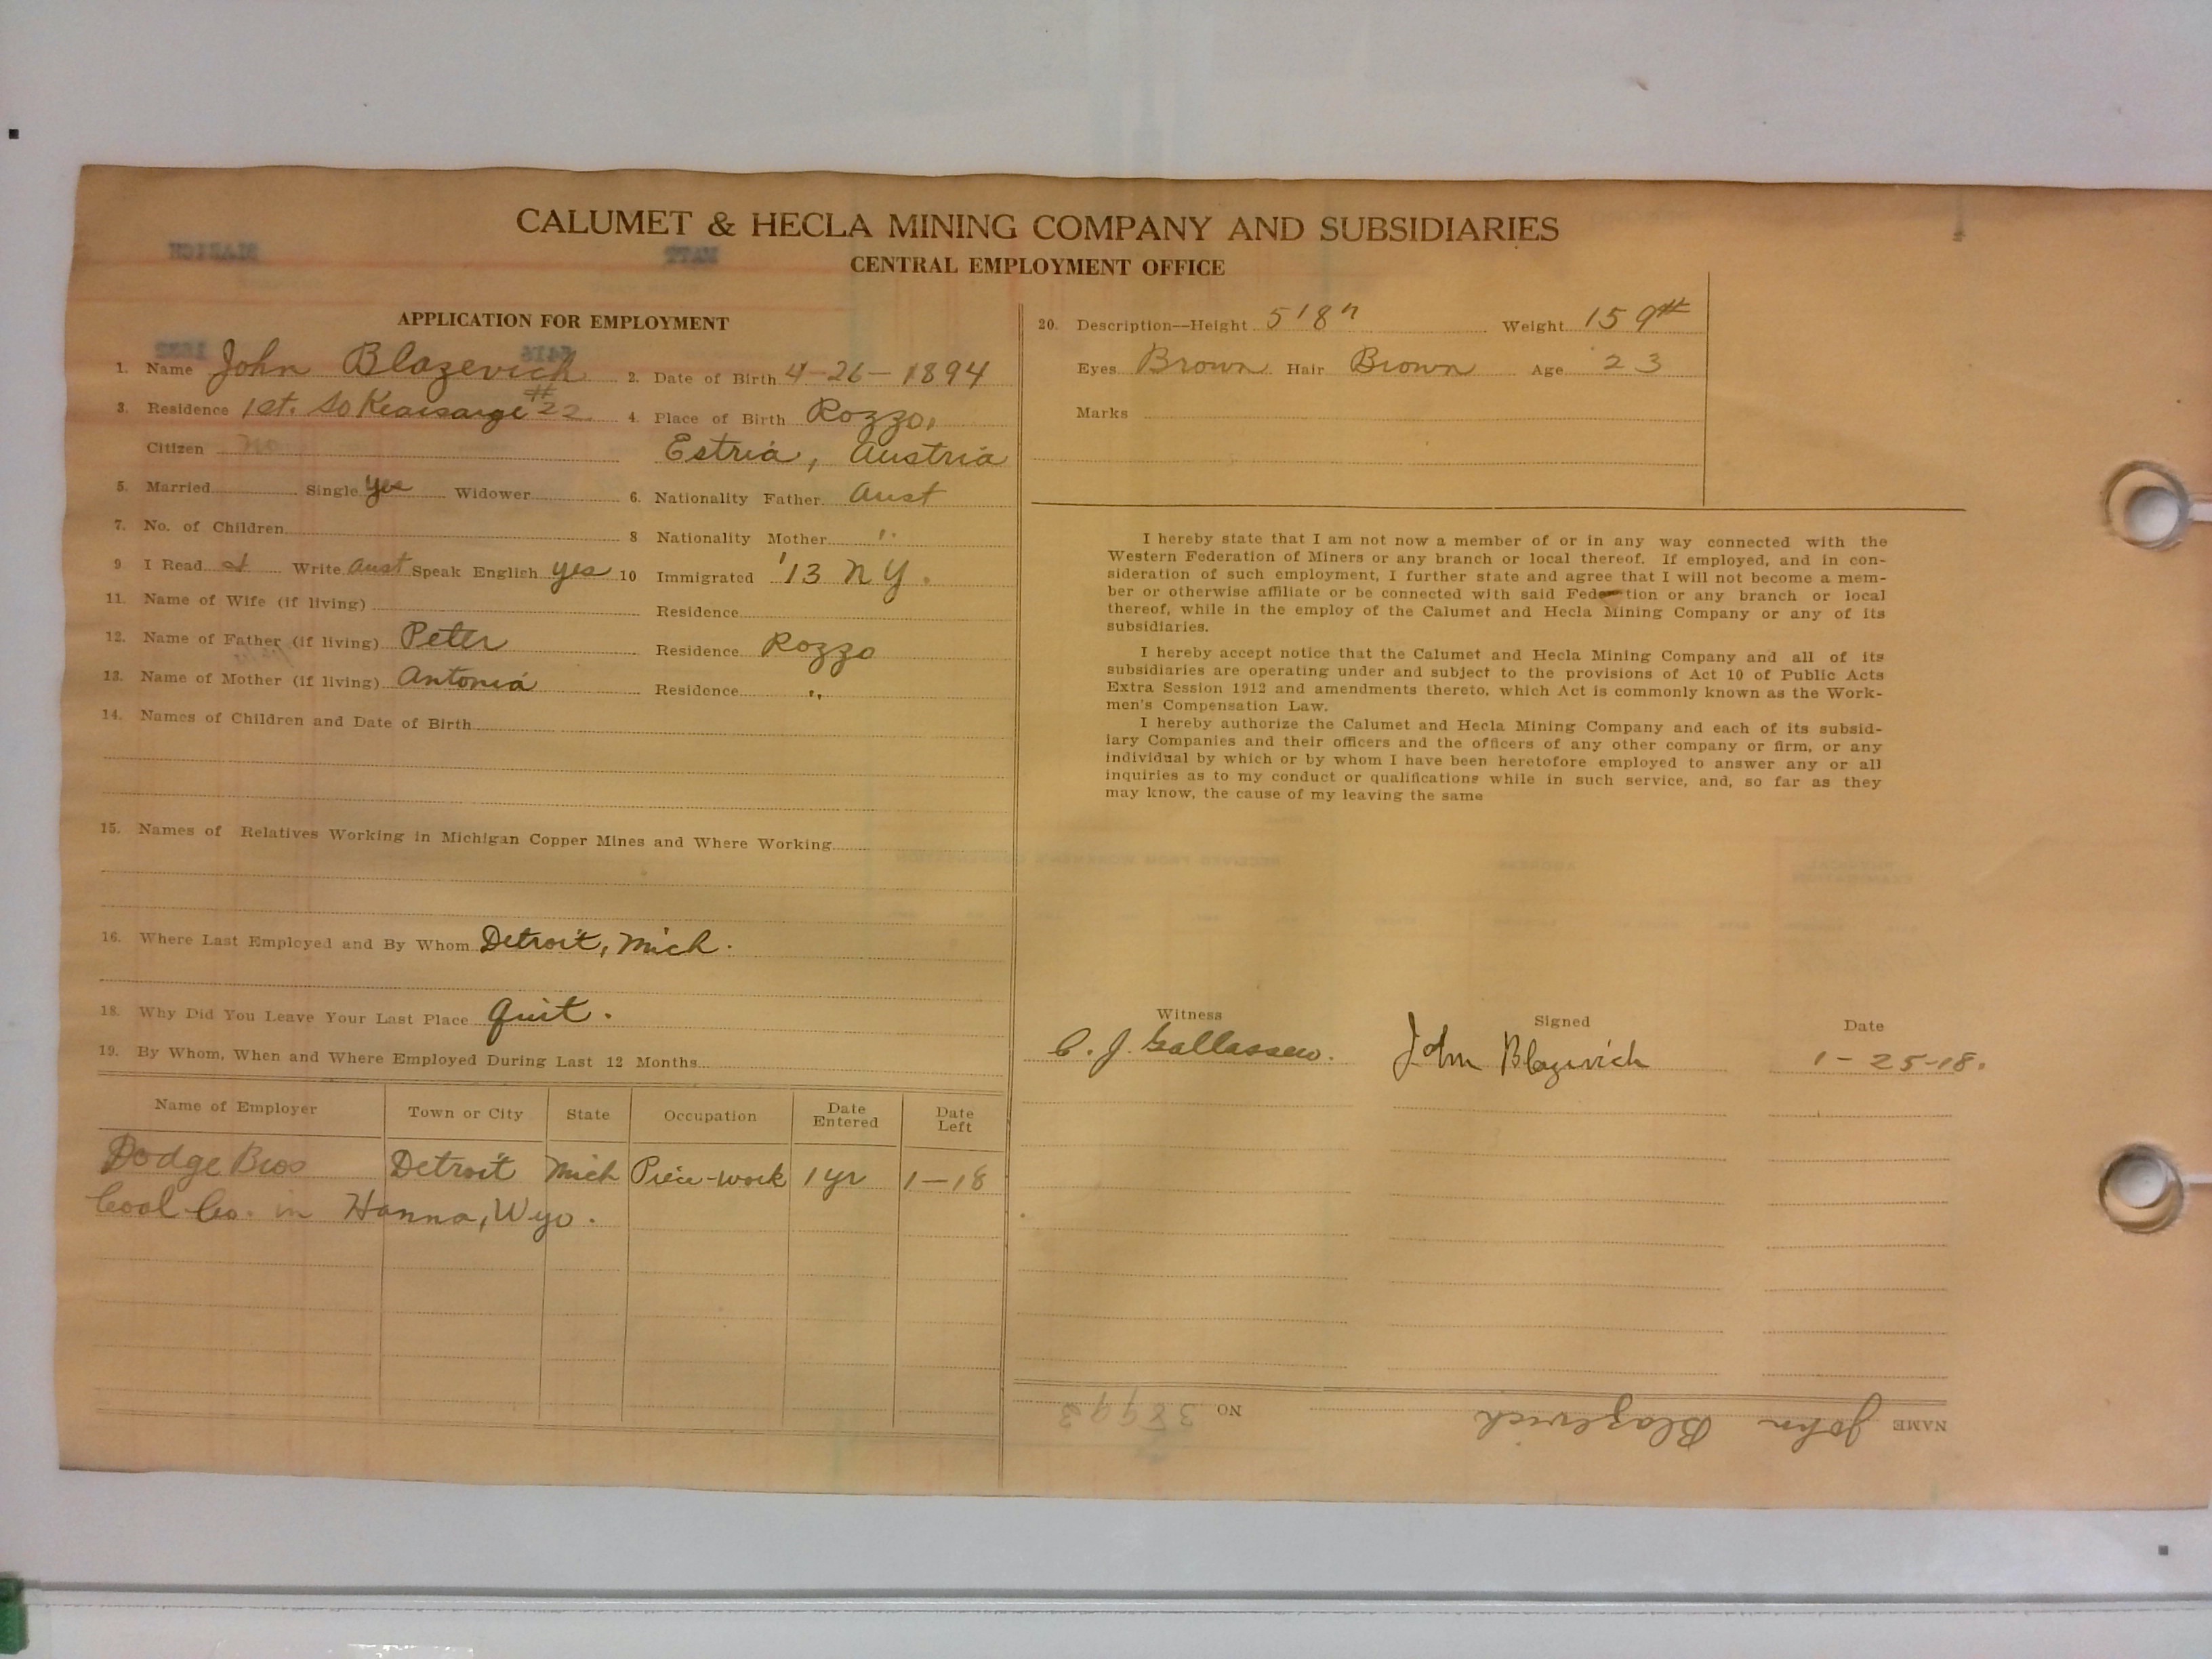 CALUMET & HECLA MINING COMPANY AND SUBSIDIARIES
CENTRAL EMPLOYMENT OFFICE
APPLICATION FOR EMPLOYMENT
1. Name John Blazevich 2. Date of Birth 4-26-1894
3. Residence 1st. So Kearsarge #22 4. Place of Birth Rozzo,
Citizen No Estria, Austria
5. Married Single yes Widower 6. Nationality Father Aust
7. No. of Children 8 Nationality Mother "
9. I Read Write Aust Speak English yes 10 Immigrated '13 N Y.
11. Name of Wife (if living) Residence
12. Name of Father (if living) Peter Residence Rozzo
13. Name of Mother (if living) Antonia Residence "
14. Names of Children and Date of Birth
15. Names of Relatives Working in Michigan Copper Mines and Where Working
16. Where Last Employed and By Whom Detroit, Mich.
18. Why Did You Leave Your Last Place Quit.
19. By Whom, When and Where Employed During Last 12 Months
Name of Employer Town or City State Occupation Date Entered Date Left
Dodge Bros Detroit Mich Piece-work 1 yr 1-18
Coal Co. in Hanna, Wyo.
20. Description—Height 5'8" Weight 159#
Eyes Brown Hair Brown Age 23
Marks
I hereby state that I am not now a member of or in any way connected with the
Western Federation of Miners or any branch or local thereof. If employed, and in con-
sideration of such employment, I further state and agree that I will not become a mem-
ber or otherwise affiliate or be connected with said Federation or any branch or local
thereof, while in the employ of the Calumet and Hecla Mining Company or any of its
subsidiaries.
I hereby accept notice that the Calumet and Hecla Mining Company and all of its
subsidiaries are operating under and subject to the provisions of Act 10 of Public Acts
Extra Session 1912 and amendments thereto, which Act is commonly known as the Work-
men's Compensation Law.
I hereby authorize the Calumet and Hecla Mining Company and each of its subsid-
iary Companies and their officers and the officers of any other company or firm, or any
individual by which or by whom I have been heretofore employed to answer any or all
inquiries as to my conduct or qualifications while in such service, and, so far as they
may know, the cause of my leaving the same
Witness Signed Date
C. J. John Blazevich 1-25-18.
NAME John Blazevich NO 38993